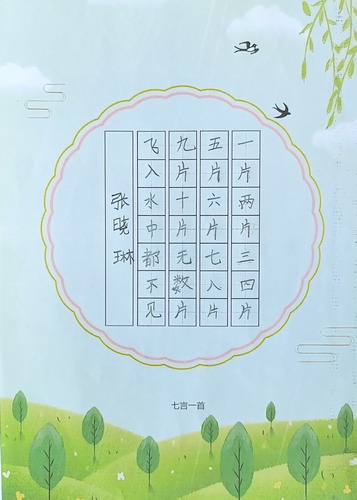 一片两片三四片
五片六片七八片
九片十片无数片
飞入水中都不见
张晓琳
七言一首